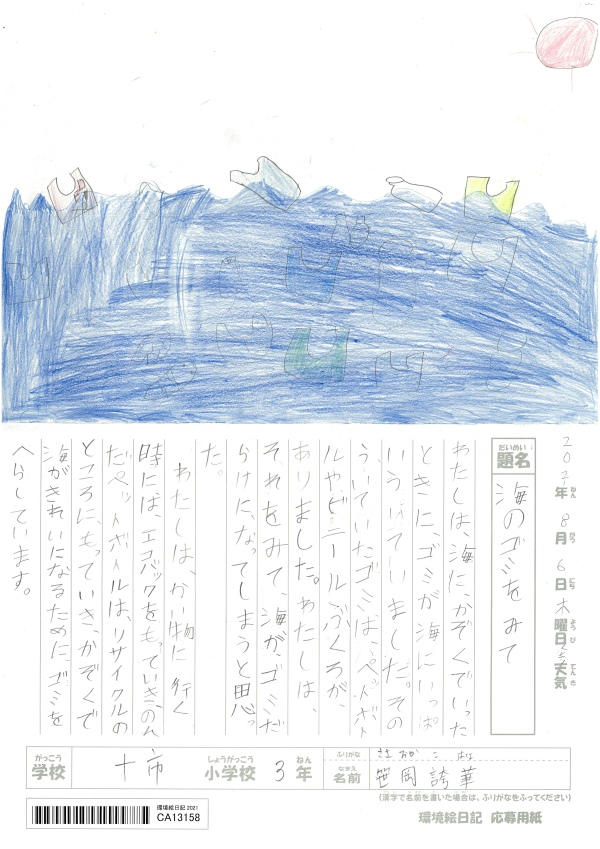 年 8月 6日 木曜日 天気
ねん がつ にち ようび てんき
だいめい
題名
海のゴミをみて
わたしは、海に、かぞくでいった
ときに、ゴミが海にいっぱ
いういていました。その
ういていたゴミは、ペットボト
ルやビニールぶくろが、
ありました。わたしは、
それをみて、海が、ゴミだ
らけに、なってしまうと思っ
た。
わたしは、かい物に行く
時には、エコバックをもっていき、のん
だペットボトルは、リサイクルの
ところに、もっていき、かぞくで
海がきれいになるために、ゴミを
へらしています。
がっこう
学校
十市
しょうがっこう
小学校
3
ねん
年
ふりがな
ささおか こ はな
なまえ
名前
笹岡 誇華
(漢字で名前を書いた場合は、ふりがなをふってください)
環境絵日記 2021
CA13158
環境絵日記 応募用紙